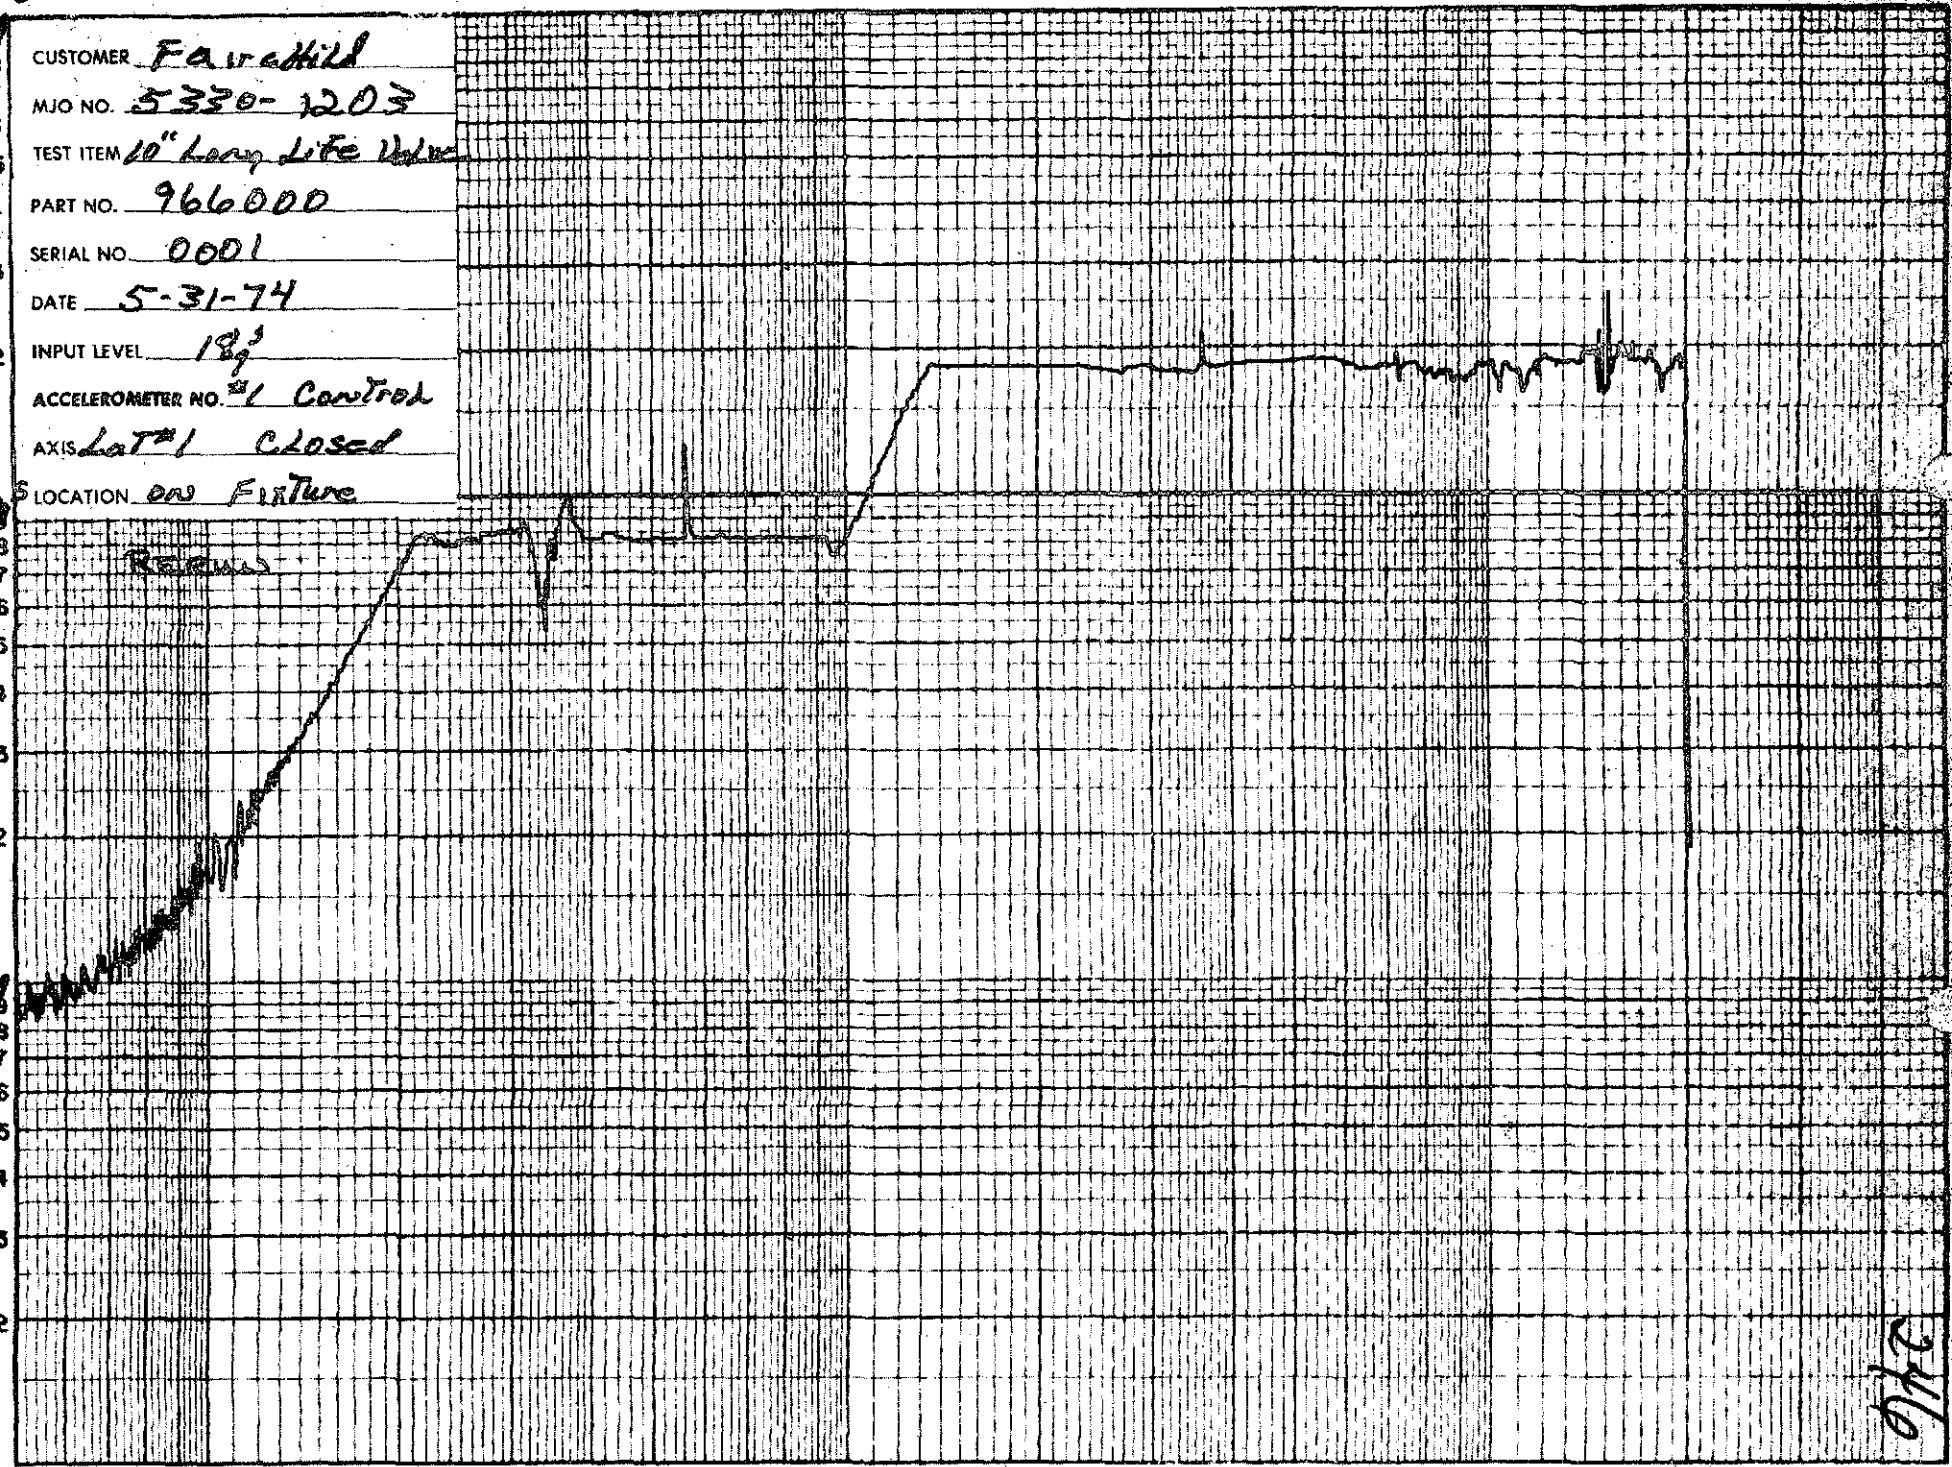 CUSTOMER Fairchild
MJO NO. 5330-1203
TEST ITEM 10" Long Life Valve
PART NO. 966000
SERIAL NO. 0001
DATE 5-31-74
INPUT LEVEL 18g's
ACCELEROMETER NO. #1 Control
AXIS LaT #1 CLosed
LOCATION on FixTure
RERUN
9
7
6
5
4
3
2
9
8
7
6
5
4
3
2
246